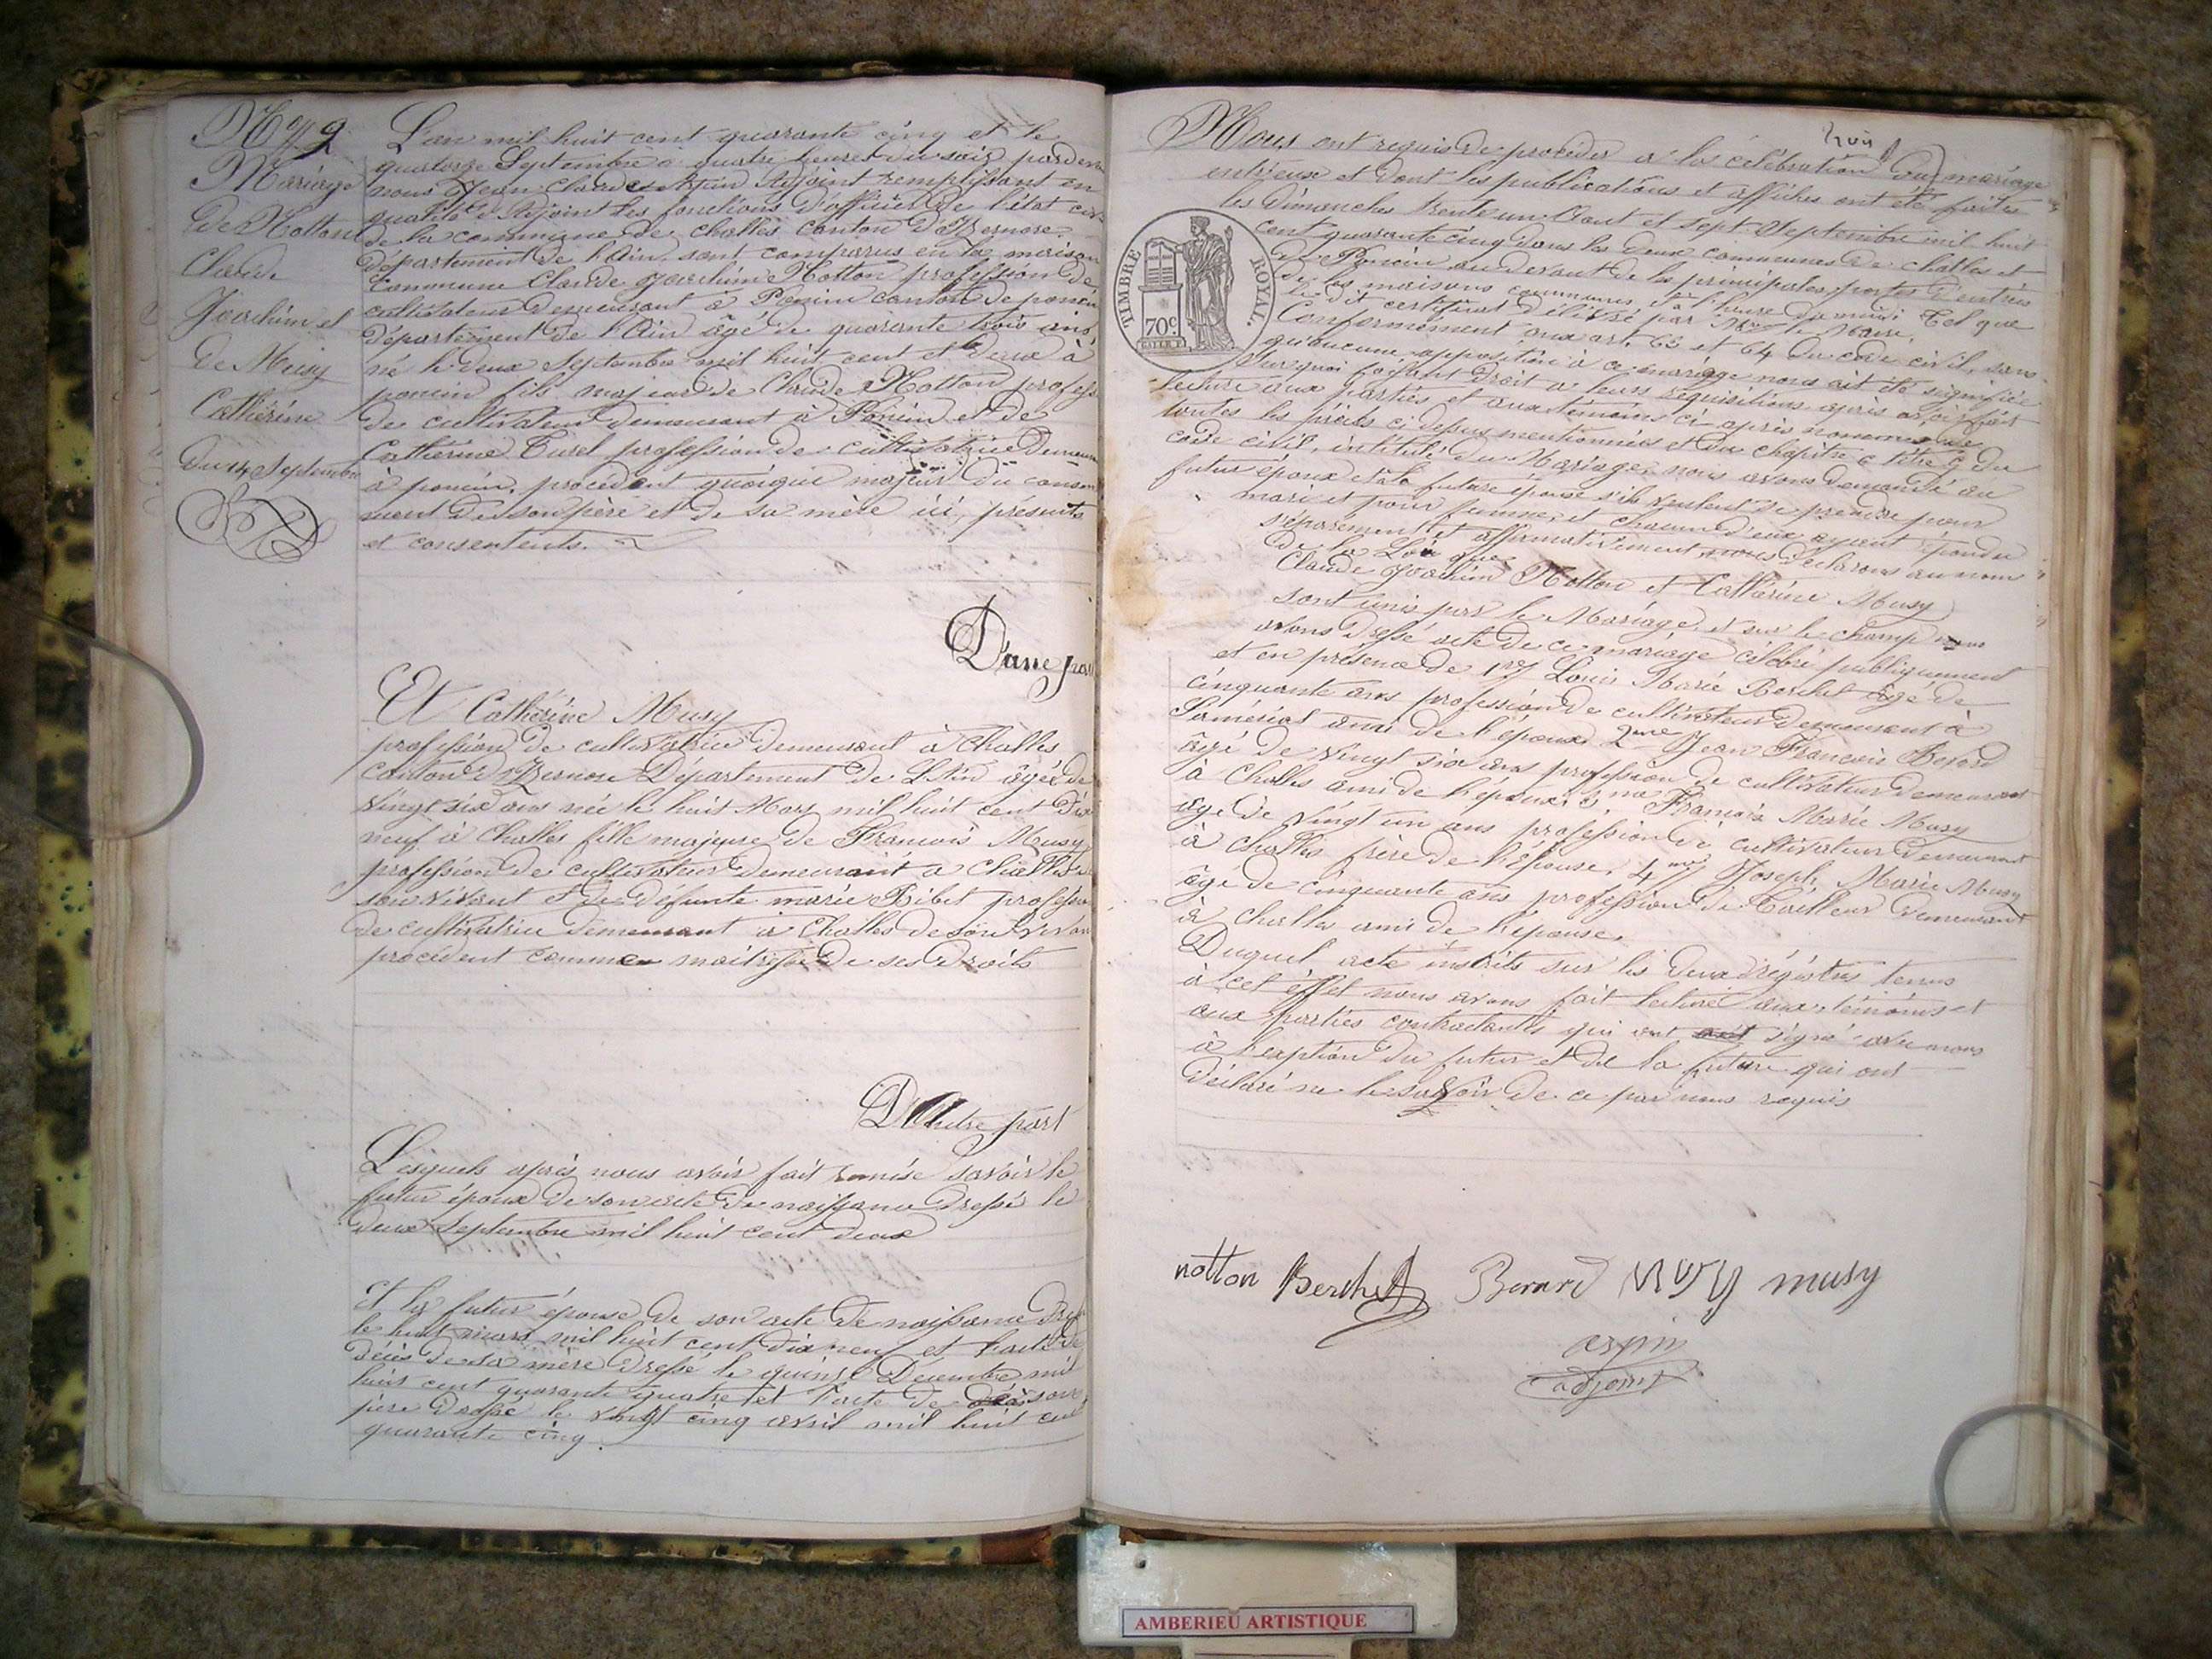 N° 9
Mariage
de Notton
Claude
Joachim et
de Musy
Catherine
du 14 Septembre
L'an mil huit cent quarante cinq et le
quatorze Septembre a quatre heures du soir pardevant
nous Jean Claude Adjoint remplissant en
qualité d'Adjoint les fonctions d'officier de l'état civ
de la commune de challes canton d'Izernore
département de l'Ain, sont comparus en la maison
commune Claude Joachim Notton profession de
cultivateur demeurant à Poncin canton de poncin
département de l'Ain âgé de quarante trois ans
né le deux Septembre mil huit cent et deux à
poncin fils majeur de Claude Notton profess
de cultivateur demeurant à Poncin et de
Catherine Turel profession de cultivatrice demeurant
à poncin, procédent quoique majeur du consen
ment de son père et de sa mère ici présents
et consentents.
D'une part
Et Catherine Musy
profession de cultivatrice demeurant à Challes
canton d'Izernore Département de L'Ain âgée de
vingt six ans née le huit Mars mil huit cent dix
neuf à Challes fille majeure de François Musy
profession de cultivateur demeurant a Challes de
son vivant et de défunte marie Ribet profession
de cultivatrice demeurant à Challes de son vivan
procédent comme maitresse de ses droits
D'Autre part
Lesquels après nous avoir fait remise savoir le
futur époux de son acte de naissance dressé le
deux Septembre mil huit cent deux
Et la futur épouse de son acte de naissance
le huit mars mil huit cent dix neuf et l'acte de
décès de sa mère dressé le quinze Décembre mil
huit cent quarante quatre et l'acte de décès son
père dressé le vingt cinq avril mil huit cent
quarante cinq.
Nous ont requis de procéder à la célébration du mariage
entr'eux et dont les publications et affiches ont été faites
les dimanches trente un Aout et sept Septembre mil huit
cent quarante cinq dans les deux communes de challes et
de Poncin au devant de la principale porte d'entrée
de les maisons communes, à l'heure de midi Tel que
le dit certificat délivré par Mr le Maire,
Conformément aux art. 63 et 64 du code civil, sans
qu'aucune opposition à ce mariage nous ait été signifiée
Sur quoi faisant droit a leurs réquisitions après avoir fait
lecture aux parties et aux témoins ci-après nommés de
toutes les pièces ci dessus mentionnées et du chapitre 6 titre 5 du
code civil, intitulé du Mariage, nous avons demandé au
futur époux et à la future épouse s'ils veulent se prendre pour
mari et pour femme, et chacun d'eux ayant répondu
séparement et affirmativement nous déclarons au nom
de la Loi que
Claude Joachim Notton et Catherine Musy
sont unis par le Mariage, et sur le champ nous
avons dressé acte de ce mariage célébré publiquement
et en présence de 1er Louis Marie Berchet âgé de
cinquante ans profession de cultivateur demeurant à
ami de l'époux 2me Jean François Berard
âgé de vingt six ans profession de cultivateur demeurant
à Challes ami de l'époux, 3me François Marie Musy
âgé de vingt un ans profession de cultivateur demeurant
à Challes frère de l'Epouse, 4me Joseph Marie Musy
âgé de cinquante ans profession de Tailleur demeurant
à challes ami de l'épouse.
Duquel acte inscrits sur les deux régistres tenus
à cet effet nous avons fait lecture aux témoins et
aux parties contractantes qui ont signé avec nous
à l'exeption du futur et de la future qui ont
déclaré ne le savoir de ce par nous requis
TIMBRE ROYAL.
70c.
notton Berchet Berard musy musy
adjoint
AMBERIEU ARTISTIQUE